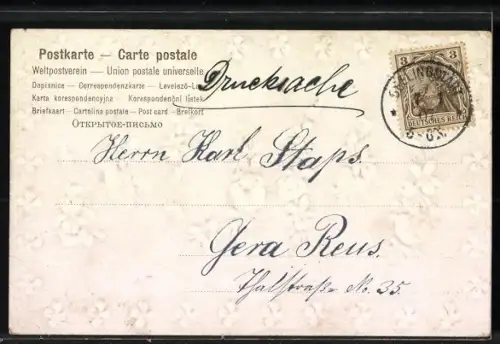 Postkarte — Carte postale
Weltpostverein — Union postale universelle
Dopisnice — Correspondenzkarte — Levelező-L
Karta korespondencyjna Korespondenční lístek
Briefkaart — Cartolina postale — Post card — Brefkort
Открытое-письмо
Drucksache
3 3
DEUTSCHES REICH
Herrn Karl Staps.
Gera Reus.
Thalstraße No. 35.